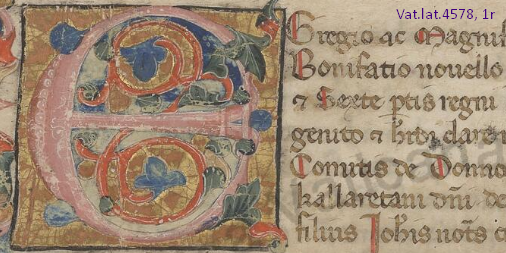 Vat.lat.4578, 1r
E Gregio ac Magnif
Bonifatio nouello
⁊ Sexte ꝑtis regni
genito ⁊ hrdi dare
Comitis de Domno
kallaretani dni de
filius Johis nots c